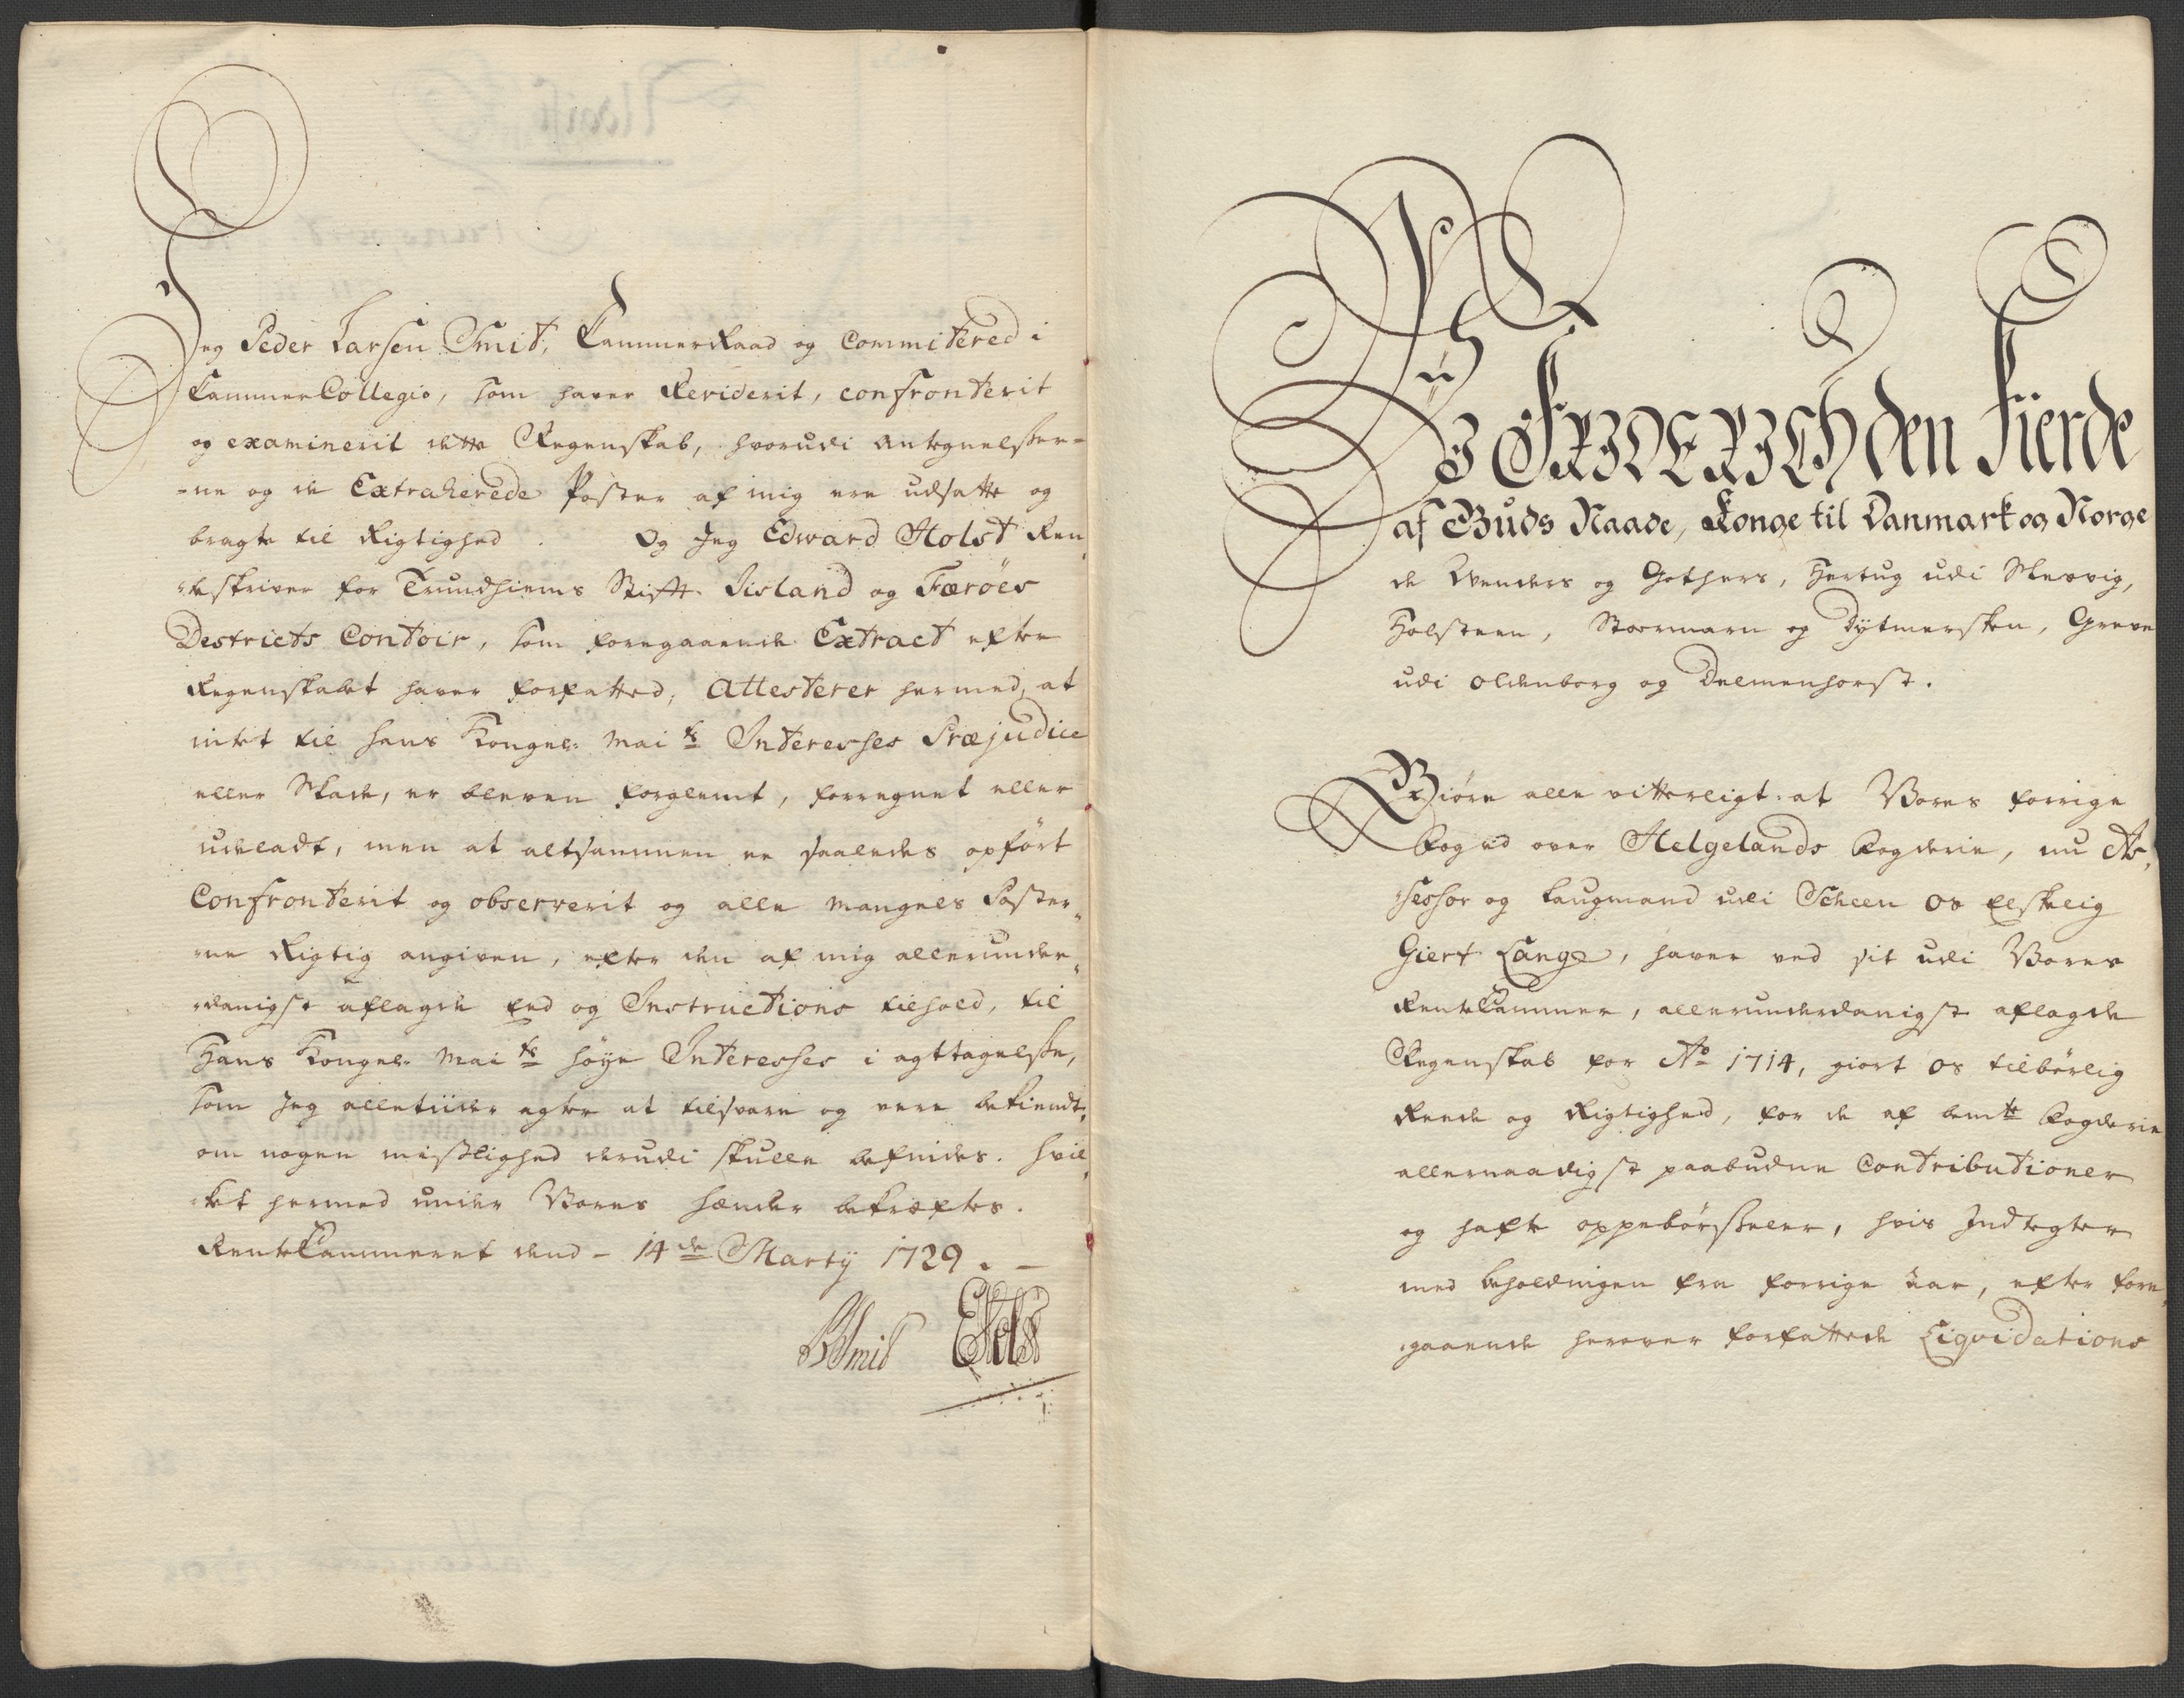 Jeg Peder Larsen Smit, CammerRaad og Committered i
CammerCollegio, som haver Reviderit, confronterit
og examinerit dette Regenskab, hvorudi Antegnelser-
-ne og de Extraherede Poster af mig ere udsatte og
bragte til Rigtighed. Og Jeg Edward Holst Ren,,
,,teskriver for Trundhiems Stift. Iisland og Færöes
Destricts Contoir, som foregaaende Extract efter
Regenskabet haver forfatted, Attesterer hermed, at
intet til hans Kongel: Mai ts Interesses Præjudice
eller Skade, er bleven forglemt, forregnet eller
udeladt, men at altsammen er saaledes opfört
Confronterit og observerit og alle Mangels Poster,,
,,ne Rigtig angiven, efter den af mig allerunder,,
,,danigst aflagde Eed og Instructions tilhold, til
Hans Kongel: Mai ts höye Interesses i agttagelse,
som Jeg alletiider agter at tilsvare og være bekiendt,
om nogen misslighed derudi skulle befindes. Hvil,,
,,ket hermed under Vores Hænder bekræftes.
RenteCammeret dend - 14 de Martÿ 1729. -
PLSmit EHolst
Wii
FRIDERICH den Fierde
af Guds Naade, Konge til Danmark og Norge
de Wenders og Gothers, Hertug udi Slesvig,
Holsteen, Stormarn og Dÿtmersken, Greve
udi Oldenborg og Delmenhorst.
Giöre alle vitterligt: at Vores forrige
Foged over Helgelands Fogderie, nu As,,
,,sessor og Laugmand udi Scheen os Elskelig
Giert Lange, haver ved sit udi Vores
RenteCammer, allerunderdanigst aflagde
Regenskab for Ao 1714, giort os tilbörlig
Reede og Rigtighed, for de af bemte Fogderie
allernaadigst paabudne Contributioner
og hafte oppebörseler, hvis Indtegter
med beholdningen fra forrige Aar, efter fore,,
,,gaaende herover forfattede Liqvidations